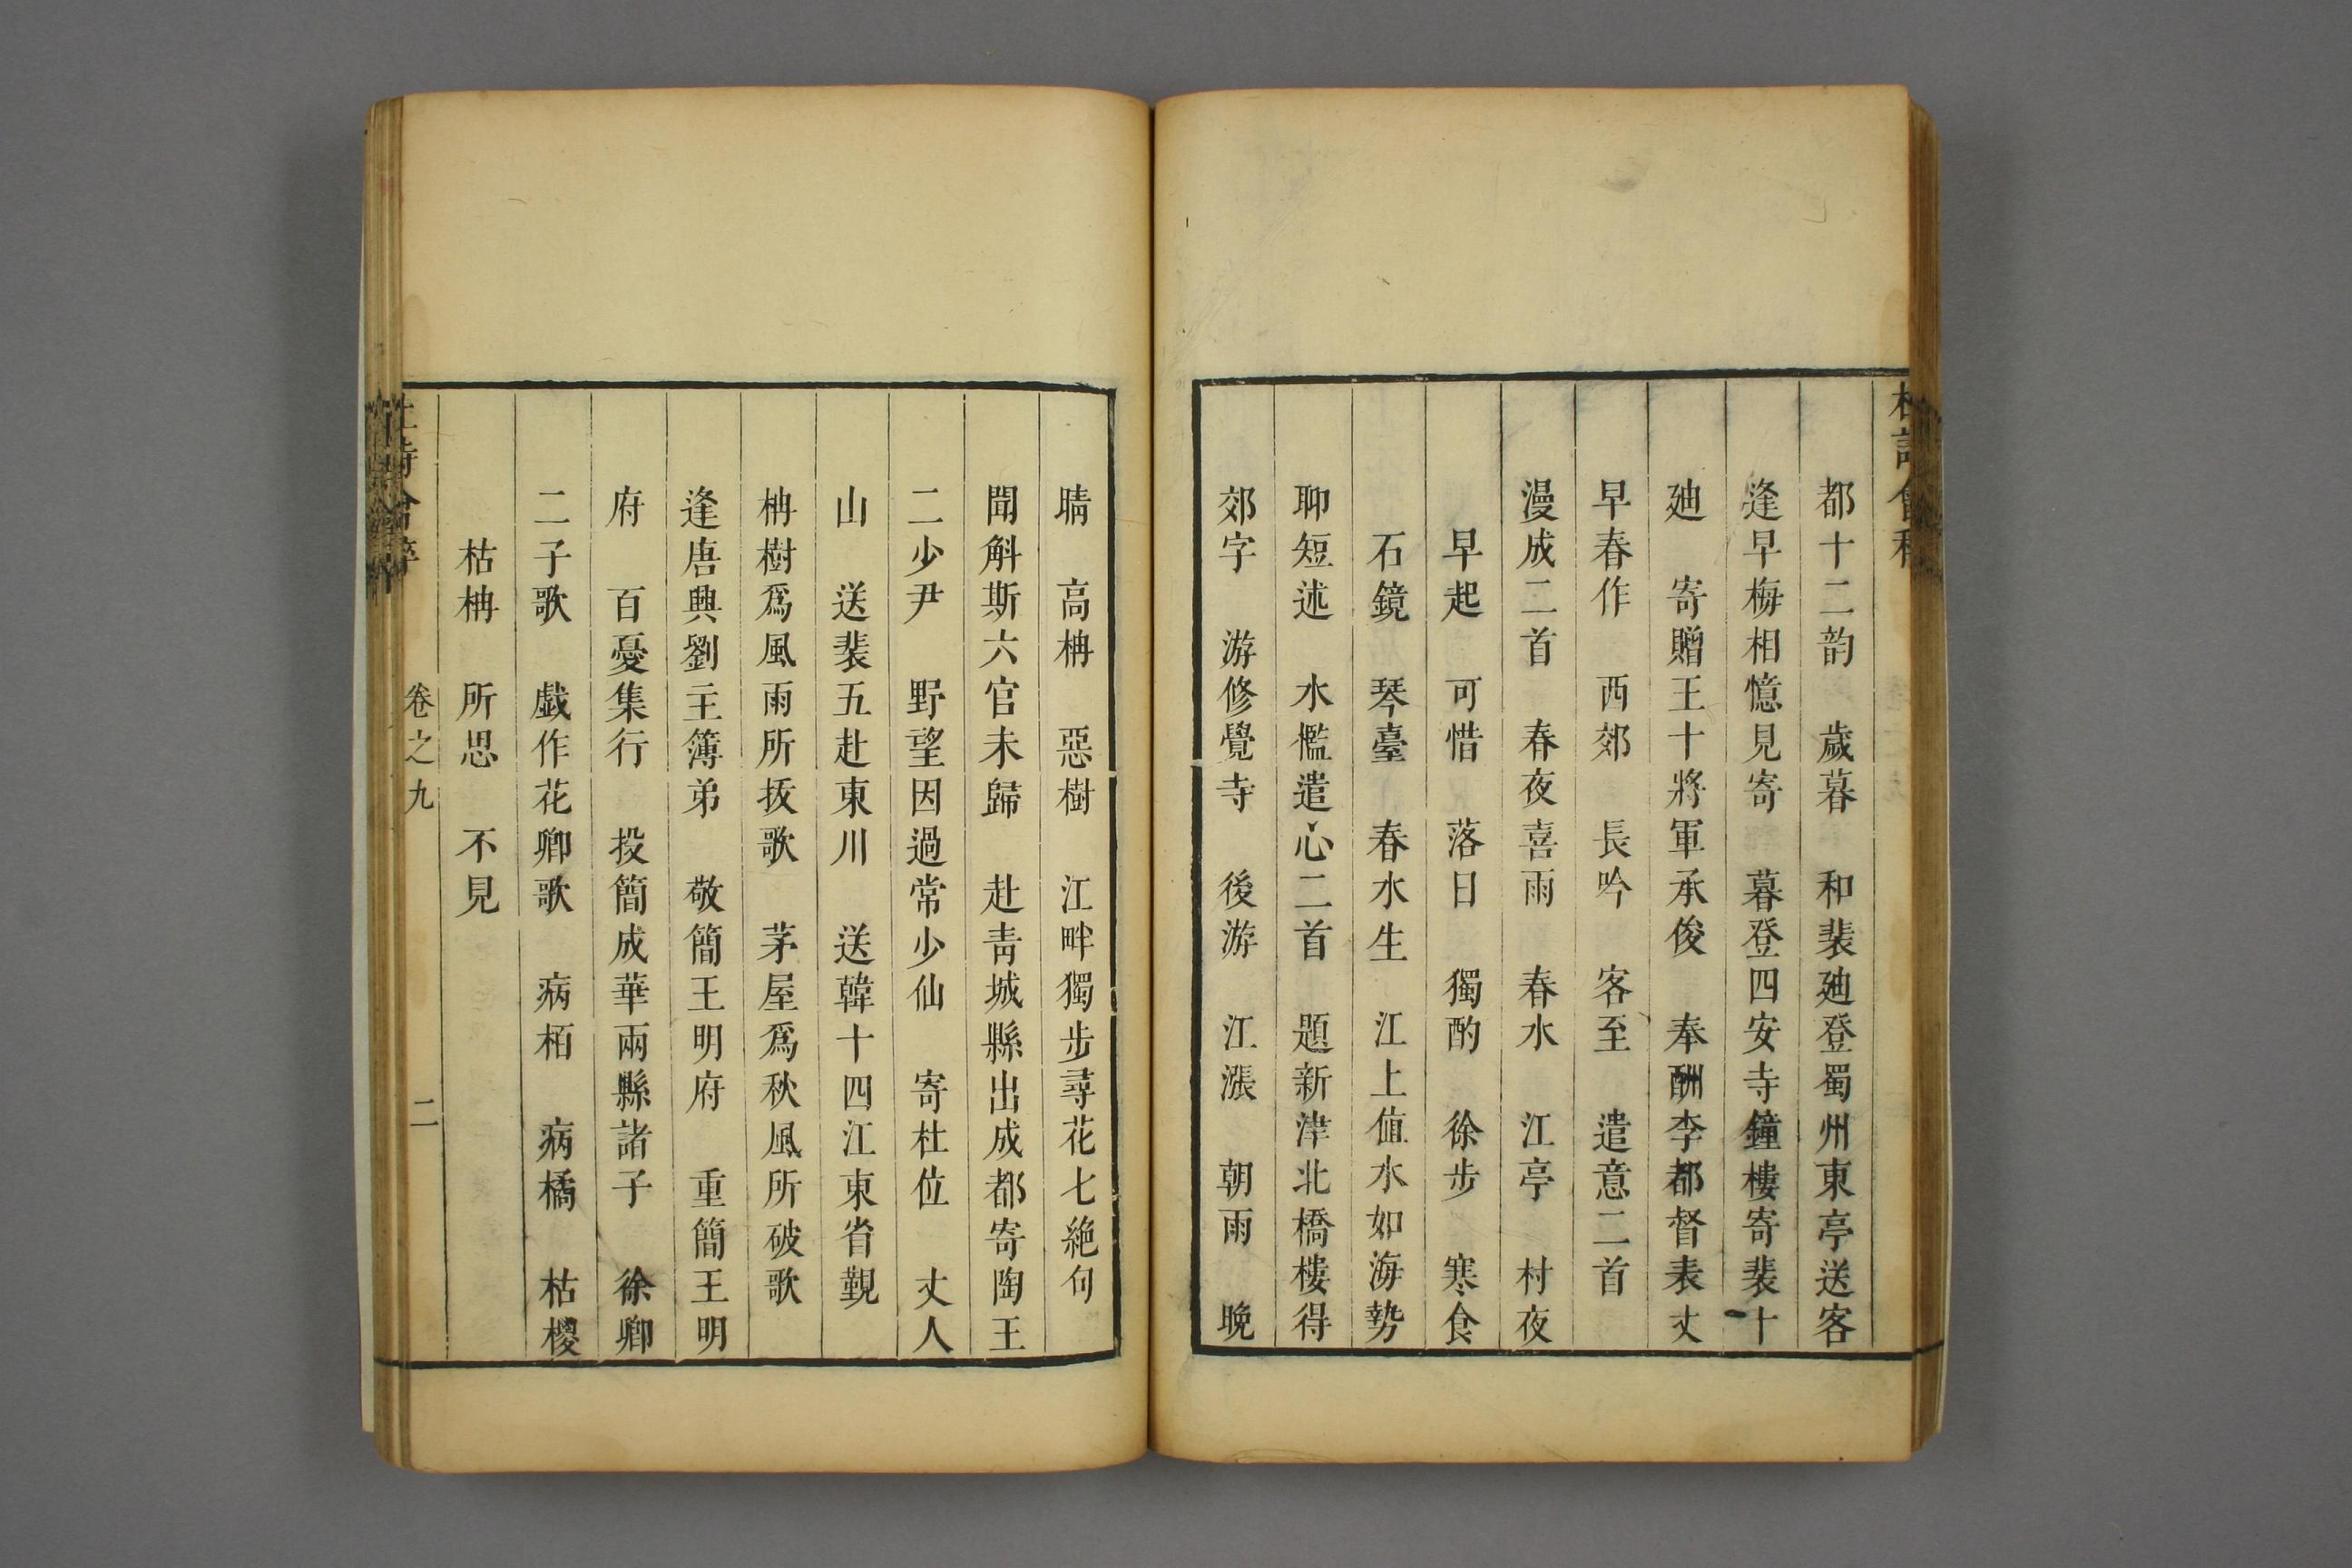 都十二韵 歲暮 和裴廸登蜀州東亭送客
逢早梅相憶見寄 暮登四安寺鐘樓寄裴十
廸 寄贈王十將軍承俊 奉酬李都督表丈
早春作 西郊 長吟 客至 遣意二首
漫成二首 春夜喜雨 春水 江亭 村夜
早起 可惜 落日 獨酌 徐步 寒食
石鏡 琴臺 春水生 江上値水如海勢
聊短述 水檻遣心二首 題新津北橋樓得
郊字 游修覺寺 後游 江漲 朝雨 晚
晴 高柟 惡樹 江畔獨步尋花七絶句
聞斛斯六官未歸 赴靑城縣出成都寄陶王
二少尹 野望因過常少仙 寄杜位 丈人
山 送裴五赴東川 送韓十四江東省覲
柟樹爲風雨所拔歌 茅屋爲秋風所破歌
逢唐興劉主簿弟 敬簡王明府 重簡王明
府 百憂集行 投簡成華兩縣諸子 徐卿
二子歌 戲作花卿歌 病栢 病橘 枯椶
枯柟 所思 不見
卷之九 二